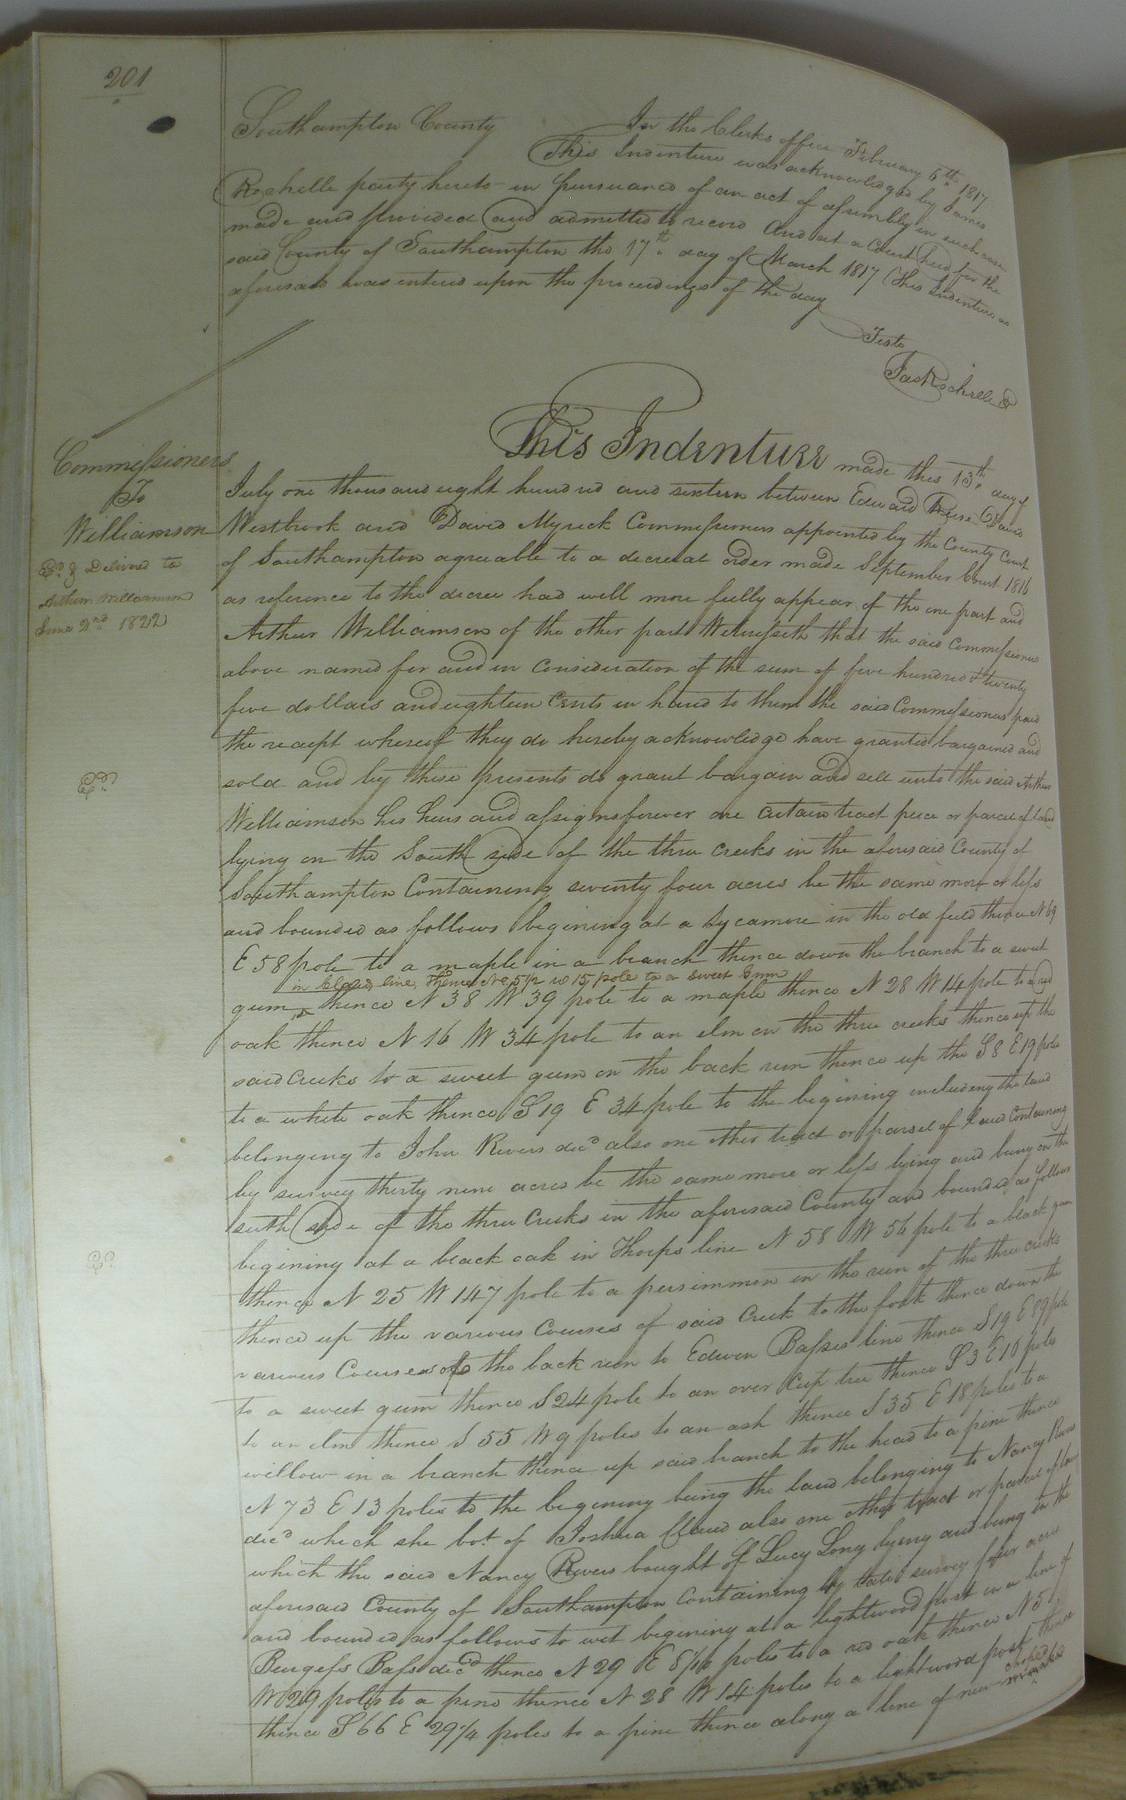 201
Southampton County In the Clerks office February 6th 1817
This Indenture was acknowledged by James
Rochelle party hereto in pursuance of an act of assembly in such case
made and provided and admitted to record And at a Court held for the
said County of Southampton the 17th day of March 1817 This Indenture as
aforesaid was entered upon the proceedings of the day
Teste
Jas Rochelle
Commissioners
To
Williamson
Delivered to
Arthur Williamson
June 2nd 1822
This Indenture made this 13th day of
July one thousand eight hundred and sixteen between Edward David
Westbrook and David Myrick Commissioners appointed by the County Court
of Southampton agreable to a decreeal order made September Court 1816
as reference to the decree had will more fully appear of the one part and
Arthur Williamson of the other part Witnesseth that the said Commissioners
above named for and in consideration of the sum of five hundred & twenty
five dollars and eighteen Cents in hand to them the said Commissioners paid
the receipt whereof they do hereby acknowledge have granted bargained and
sold and by these presents do grant bargain and sell unto the said Arthur
Williamson his heirs and assigns forever one certain tract piece or parcel of land
lying on the South side of the three creeks in the aforesaid County of
Southampton Containing seventy four acres be the same more or less
and bounded as follows begining at a Sycamore in the old field thence N 69
E 58 pole to a maple in a branch thence down the branch to a sweet
in line, thence 15 pole to a sweet Gum
gum thence N 38 W 39 pole to a maple thence N 28 W 14 pole to a red
oak thence N 16 W 34 pole to an elm on the three creeks thence up the
said Creeks to a sweet gum on the back run thence up the S 8 E 19 pole
to a white oak thence S 19 E 34 pole to the begining including the land
belonging to John Rivers decd also one other tract or parsel of land Containing
by survey thirty nine acres be the same more or less lying and being on the
south side of the three Creeks in the aforesaid County and bounded as follows
begining at a black oak in Thorps line N 58 W 56 pole to a black gum
thence N 25 W 147 pole to a persimmon in the run of the three creeks
thence up the various Courses of said Creek to the fork thence down the
various Courses of the back run to Edwin Basses line thence S 19 E 89 pole
to a sweet gum thence S 24 pole to an over Cup tree thence S 3 E 16 poles
to an elm thence S 55 W 9 poles to an ash thence S 35 E 18 poles to a
willow in a branch thence up said branch to the head to a pine thence
N 73 E 13 poles to the begining being the land belonging to Nancy Rivers
decd which she bot of Joshua Claud also one other tract or parcel of land
which the said Nancy Rivers bought of Lucy Long lying and being in the
aforesaid County of Southampton Containing by late survey four acres
and bounded as follows to wit begining at a lightwood post in a line of
Burgess Bass decd thence N 29 E poles to a red oak thence N 51
W 29 poles to a pine thence N 28 W 14 poles to a lightwood post thence
thence S 66 E 29 1/4 poles to a pine thence along a line of new